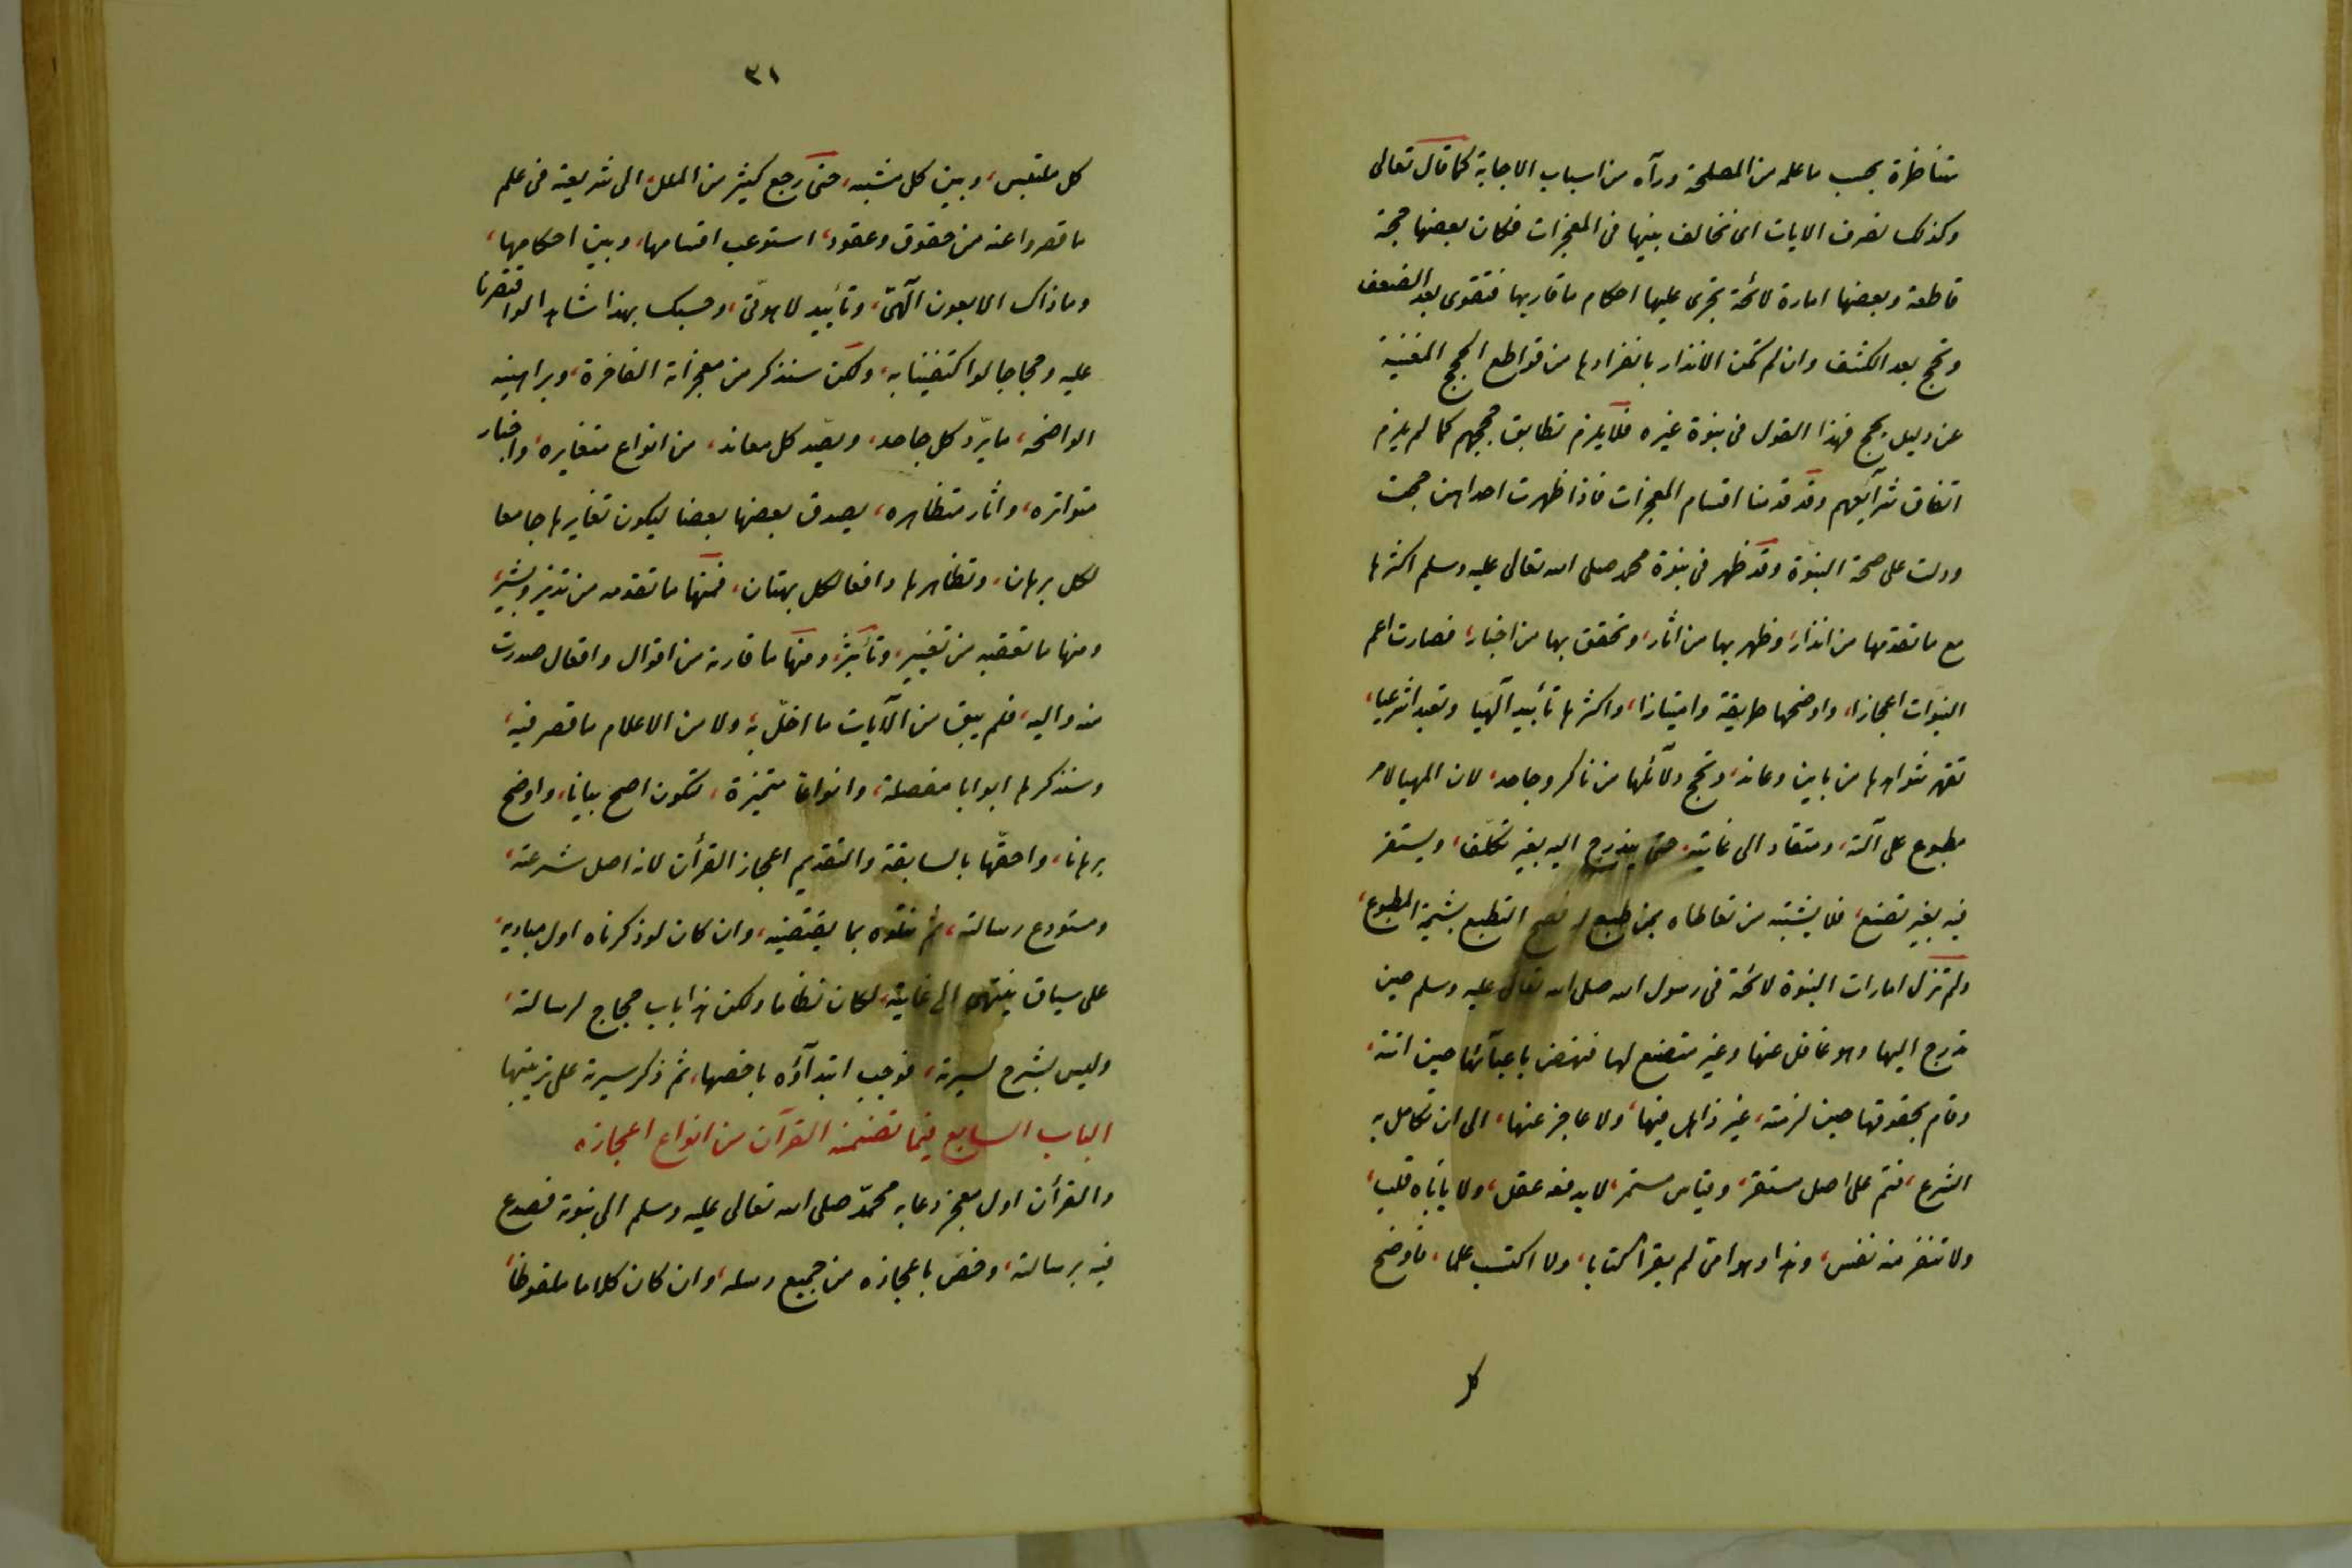 متناظرة بحسب ما علمه من المصلحة ورآه من اسباب الاجابة كما قال تعالى
وكذلك نصرف الايات اى نخالف بينها فى المعجزات فكان بعضها حجة
قاطعة وبعضها امارة لائحة تجرى عليها احكام ما قاربها فتقوى بعد الضعف
وتحج بعد الكشف وان لم تكن الانذار بانفرادها من قواطع الحجج المغنية
عن دليل يحج فهذا القول فى نبوة غيره فلا يلزم تطابق حججهم كما لم يلزم
اتفاق شرآيعهم وقد قدمنا اقسام المعجزات فاذا ظهرت احداهن حجت
ودلت على صحة النبوّة وقد ظهر فى نبوة محمد صلى الله تعالى عليه وسلم اكثرها
مع ما تقدمها من انذار، وظهر بها من اثار، وتحقق بها من اخبار، فصارت اعم
النبوّات اعجازا، واوضحها طريقة وامتيازا، واكثرها تأييدا آلهيا وتعبدا شرعيا،
تقهر شواهدها من باين وعاند، وتحج دلآئلها من ناكر وجاحد، لان المهيا لامر
مطبوع على آلته، ومنقاد الى غايته، حتى يتدرج اليه بغير تكلّف، ويستقر
فيه بغير تصنع، فلا يشتبه من تعاطاه بمن طبع له التطبع بشيمة المطبوع،
ولم تزل امارات النبوّة لائحة فى رسول الله صلى الله تعالى عليه وسلم حين
تدرج اليها وهو غافل عنها وغير متصنع لها فنهض باعبآئها حين اتته،
وقام بحقوقها حين لزمته، غير ذاهل فيها، ولا عاجز عنها، الى ان تكامل به
الشرع، فتم على اصل مستقر، وقياس مستمر، لا يدفعه عقل، ولا ياباه قلب،
ولا تنفر منه نفس، وهذا وهو امى لم يقرأ كتابا، ولا اكتسب علما، فاوضح
كل
٣١
كل ملتبس، وبين كل مشتبه، حتى رجع كثير من الملل، الى شريعته فى علم
ما قصروا عنه من حقوق وعقود، استوعب اقسامها، وبين احكامها،
وما ذاك الا بعون آلهىّ، وتأييد لاهوتىّ، وحسبك بهذا شاهدا لو اقتصرنا
عليه وحجاجا لو اكتفينا به، ولكن سنذكر من معجزاته الفاخرة، وبراهينه
الواضحه، ما يردّ كل جاحد، ويصّد كل معاند، من انواع متغايره، واخبار
متواتره، واثار متظاهره، يصدق بعضها بعضا ليكون تغايرها جامعا
لكل برهان، وتظاهرها دافعا لكل بهتان، فمنها ما تقدمه من نذير وبشير،
ومنها ما تعقبه من تغيير، وتأثير، ومنها ما قارنه من اقوال وافعال صدرت
منه واليه، فلم يبق من الآيات ما اخلّ به، ولا من الاعلام ما قصر فيه،
وسنذكرها ابوابا مفصلة، وانواعا متميزة، لتكون اصح بيانا، واوضح
برهانا، واحقّها بالسابقة والتقديم اعجاز القرآن لانه اصل شرعته،
ومستودع رسالته، ثم نتلوه بما يقتضيه، وان كان لو ذكرناه اول مباديه،
على سياق ينتهى الى غايته، لكان نظاما ولكن هذا باب حجاج لرسالته،
وليس بشرح لسيرته، فوجب ابتدآؤه باخصها، ثم ذكر سيرته على ترتيبها
الباب السابع فيما تضمنه القرآن من انواع اعجازه
والقرأن اول معجز دعا به محمّد صلى الله تعالى عليه وسلم الى نبوته فصدع
فيه برسالته، وخصّ باعجازه من جميع رسله، وان كان كلاما ملفوظا،